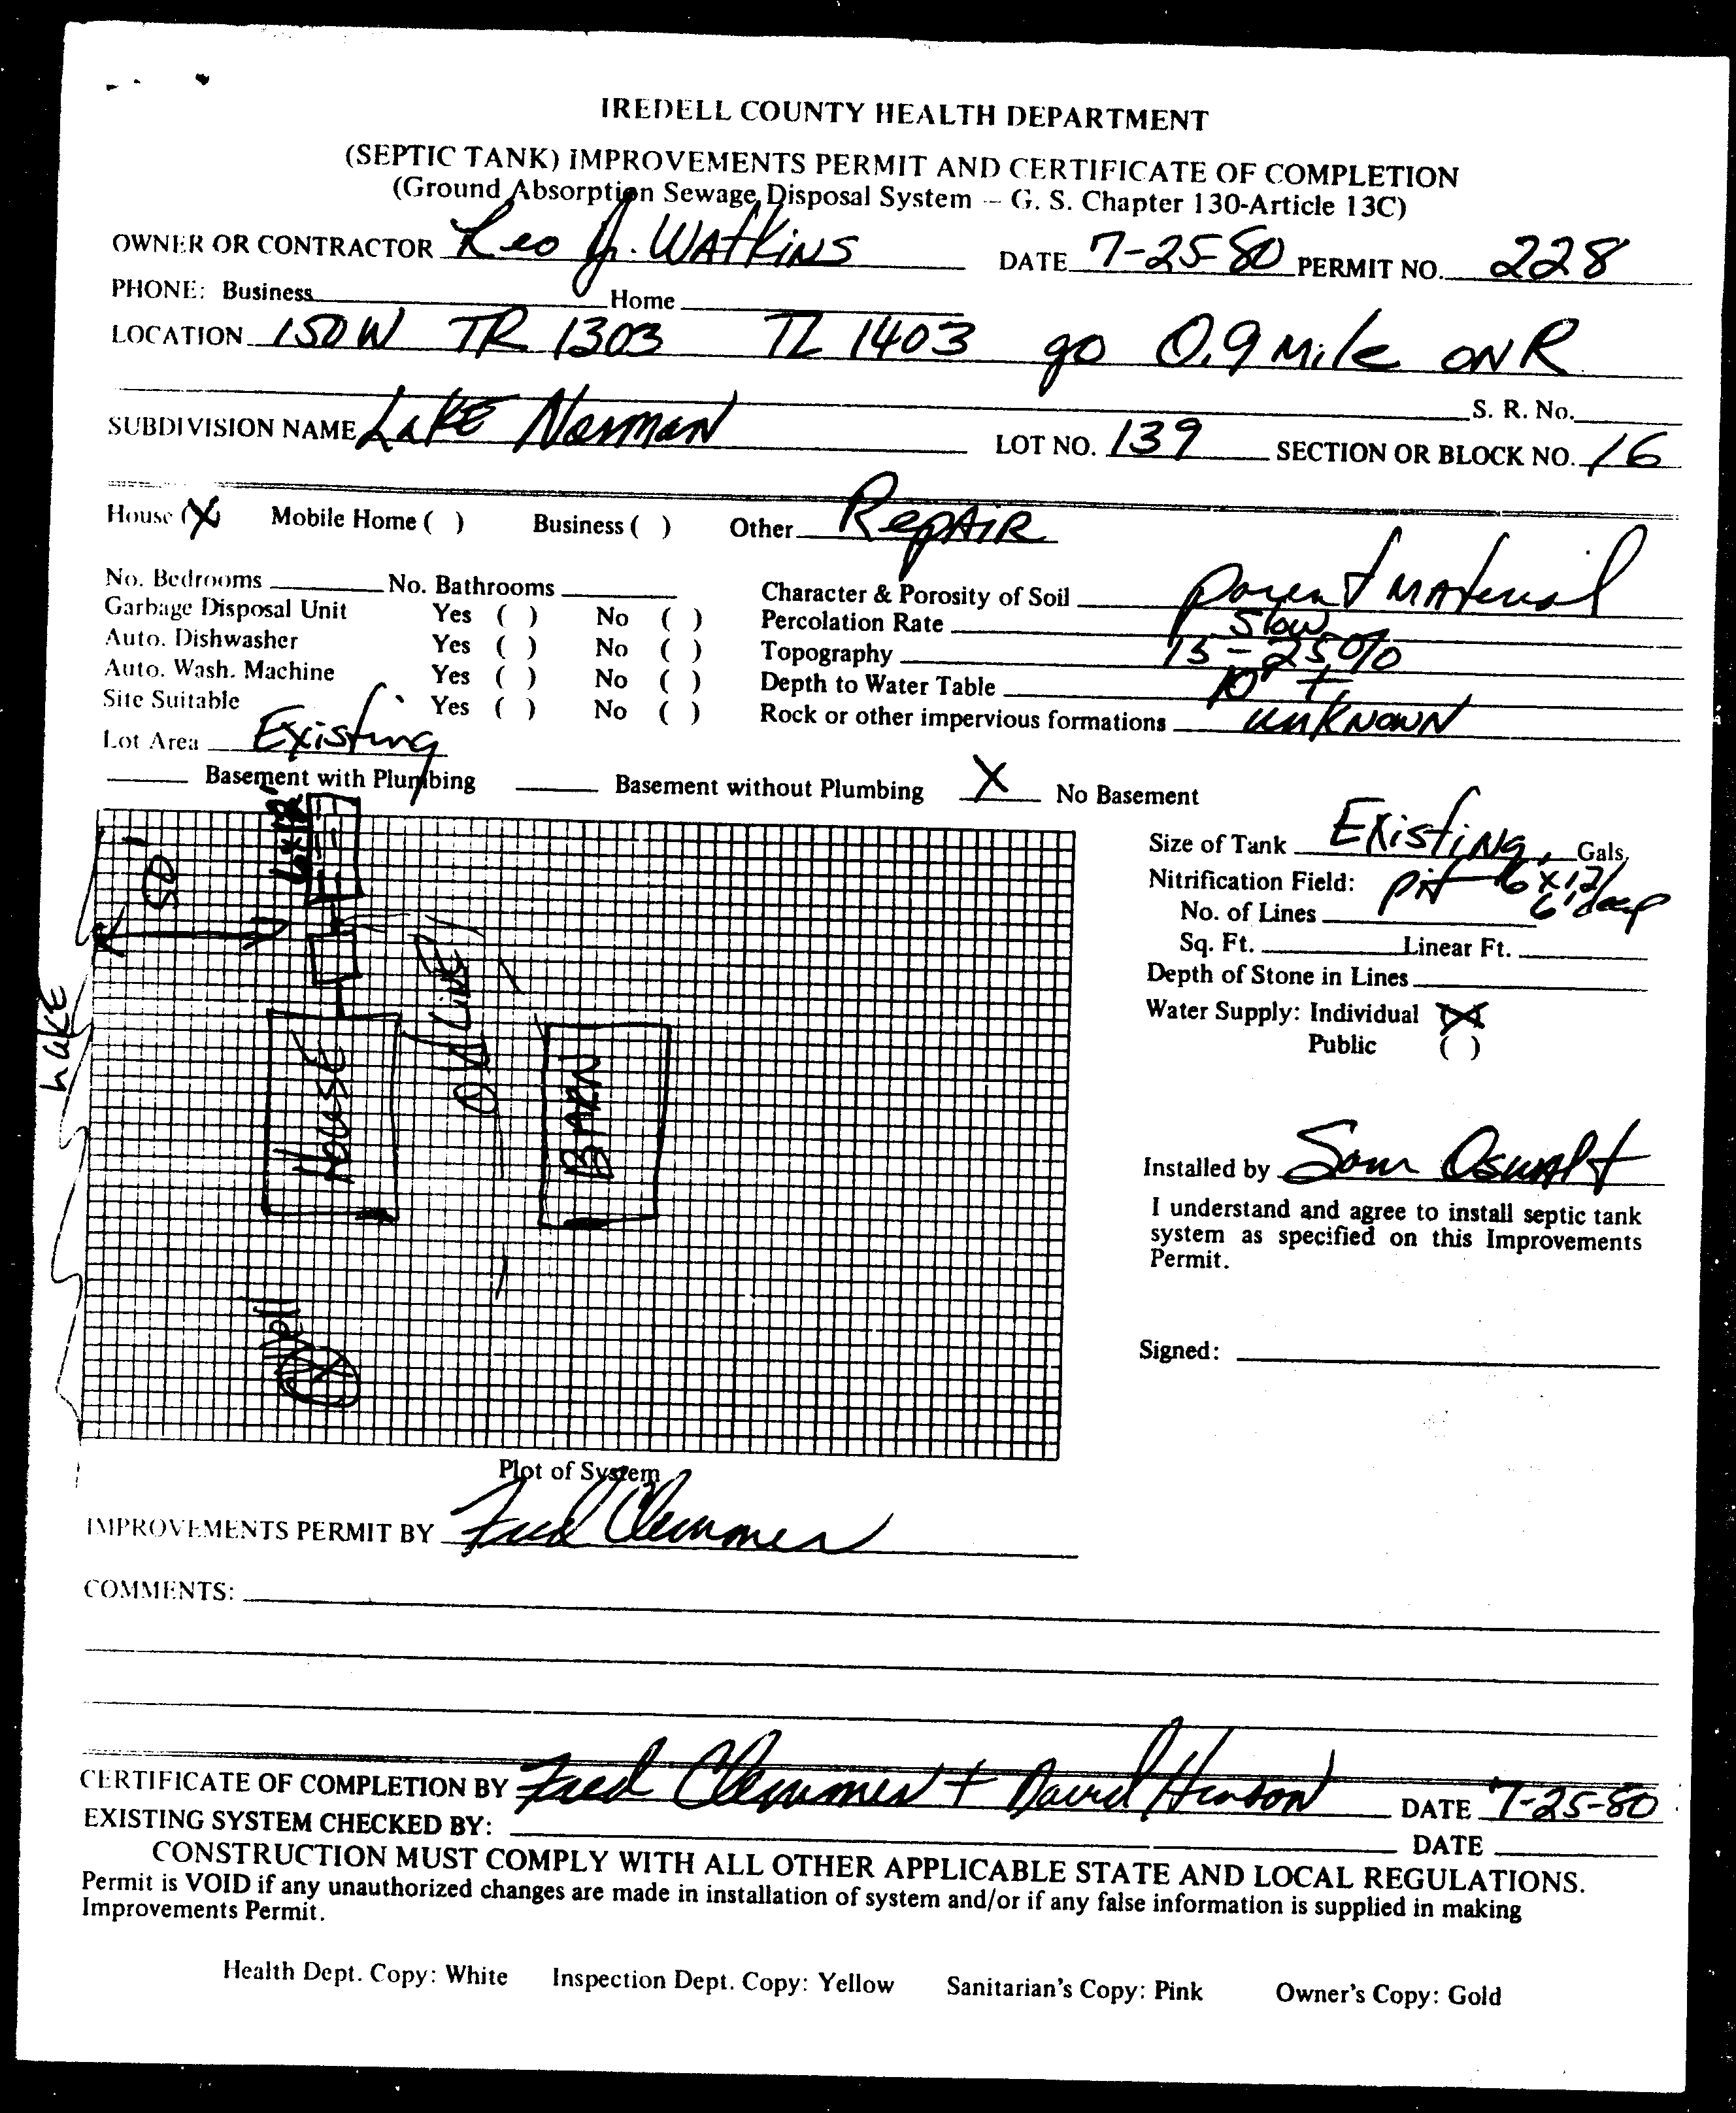 IREDELL COUNTY HEALTH DEPARTMENT
(SEPTIC TANK) IMPROVEMENTS PERMIT AND CERTIFICATE OF COMPLETION
(Ground Absorption Sewage Disposal System -- G. S. Chapter 130-Article 13C)
OWNER OR CONTRACTOR Leo J. Watkins DATE 7-25-80 PERMIT NO. 228
PHONE: Business Home
LOCATION 150 W TR 1303 TL 1403 go 0.9 Mile ON R
S. R. No.
SUBDIVISION NAME LAKE Norman LOT NO. 139 SECTION OR BLOCK NO. 16
House (X) Mobile Home ( ) Business ( ) Other RepAiR
No. Bedrooms No. Bathrooms Character & Porosity of Soil parent MAterial
Garbage Disposal Unit Yes ( ) No ( ) Percolation Rate Slow
Auto. Dishwasher Yes ( ) No ( ) Topography 15-25%
Auto. Wash. Machine Yes ( ) No ( ) Depth to Water Table 10' +
Site Suitable Yes ( ) No ( ) Rock or other impervious formations unKNOWN
Lot Area Existing
Basement with Plumbing Basement without Plumbing X No Basement
Size of Tank Existing Gals.
Nitrification Field: pit 6x12
No. of Lines 6' deep
Sq. Ft. Linear Ft.
Depth of Stone in Lines
Water Supply: Individual (X)
Public ( )
6x12
50'
LAKE
House
Old Line
BARN
Well
Installed by Sam Osunlt
I understand and agree to install septic tank
system as specified on this Improvements
Permit.
Signed:
Plot of System
IMPROVEMENTS PERMIT BY Fred Clemmer
COMMENTS:
CERTIFICATE OF COMPLETION BY Fred Clemmer + David Hinson DATE 7-25-80
EXISTING SYSTEM CHECKED BY: DATE
CONSTRUCTION MUST COMPLY WITH ALL OTHER APPLICABLE STATE AND LOCAL REGULATIONS.
Permit is VOID if any unauthorized changes are made in installation of system and/or if any false information is supplied in making
Improvements Permit.
Health Dept. Copy: White Inspection Dept. Copy: Yellow Sanitarian's Copy: Pink Owner's Copy: Gold